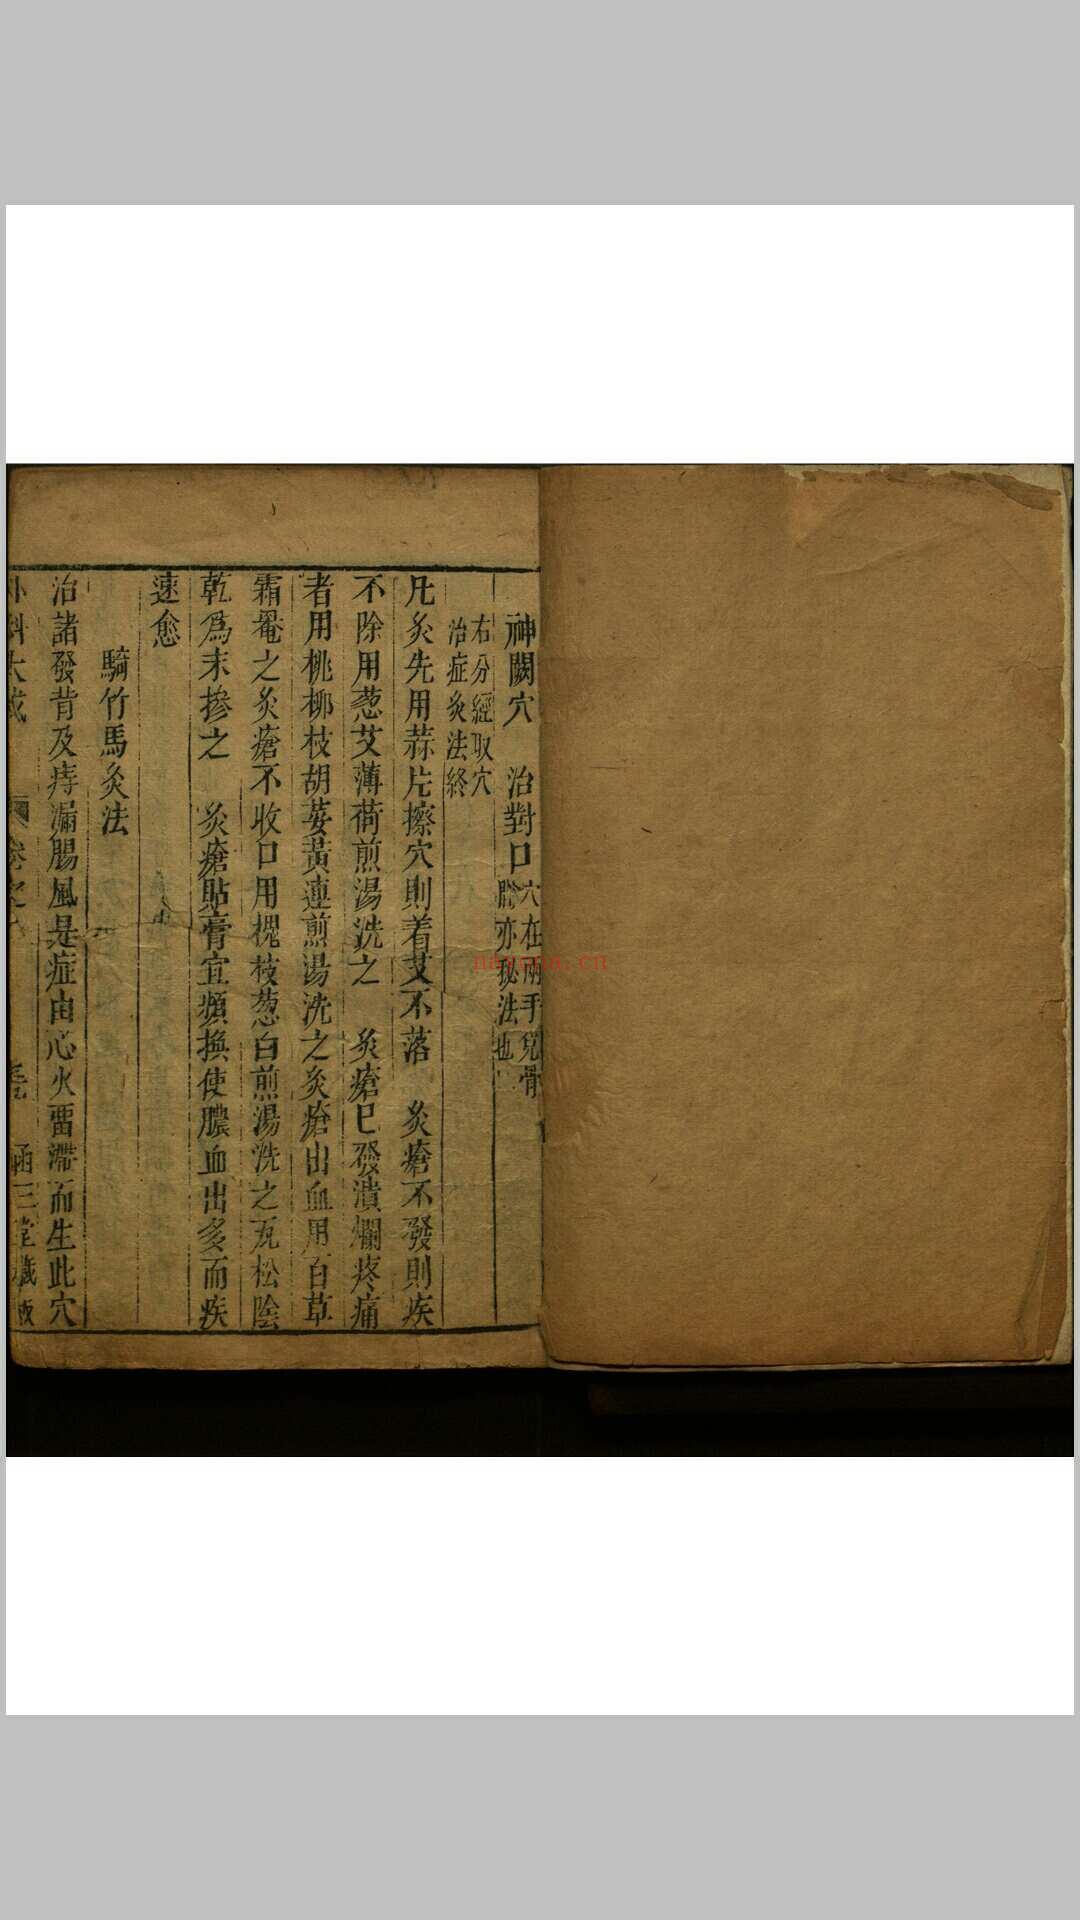 神闕穴　治對口穴在兩手兌骨
亦秘法也
右分經取穴
治症灸法終
凡灸先用蒜片擦穴則着艾不落　灸瘡不發則疾
不除用葱艾薄荷煎湯洗之　灸瘡已發潰爛疼痛
者用桃柳枝胡荽黃連煎湯洗之灸瘡出血用百草
霜罨之灸瘡不收口用槐枝葱白煎湯洗之瓦松陰
乾爲末摻之　灸瘡貼膏宜頻換使膿血出多而疾
速愈
騎竹馬灸法
治諸發背及痔漏腸風是症由心火畱滯而生此穴
外科大成　卷之　函三堂藏板
nayona.cn